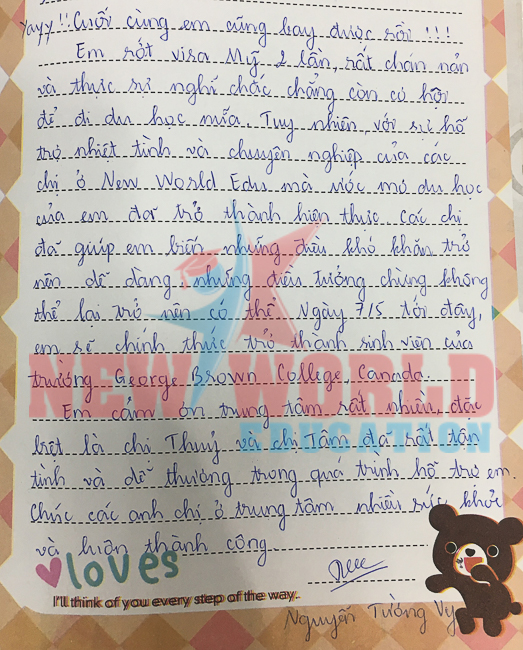 Yayy!! Cuối cùng em cũng bay được rồi !!!
Em rớt visa Mỹ 2 lần, rất chán nản
và thực sự nghĩ chắc chẳng còn cơ hội
để đi du học nữa. Tuy nhiên, với sự hỗ
trợ nhiệt tình và chuyên nghiệp của các
chị ở New World Edu mà ước mơ du học
của em đã trở thành hiện thực. Các chị
đã giúp em biến những điều khó khăn trở
nên dễ dàng, những điều tưởng chừng không
thể lại trở nên có thể. Ngày 7/5 tới đây,
em sẽ chính thức trở thành sinh viên của
trường George Brown College, Canada.
Em cảm ơn trung tâm rất nhiều, đặc
biệt là chị Thuỷ và chị Tâm đã rất tận
tình và dễ thương trong quá trình hỗ trợ em.
Chúc các anh chị ở trung tâm nhiều sức khỏe
và luôn thành công.
NEW WORLD
EDUCATION
loves
I'll think of you every step of the way.
Nguyễn Tường Vy